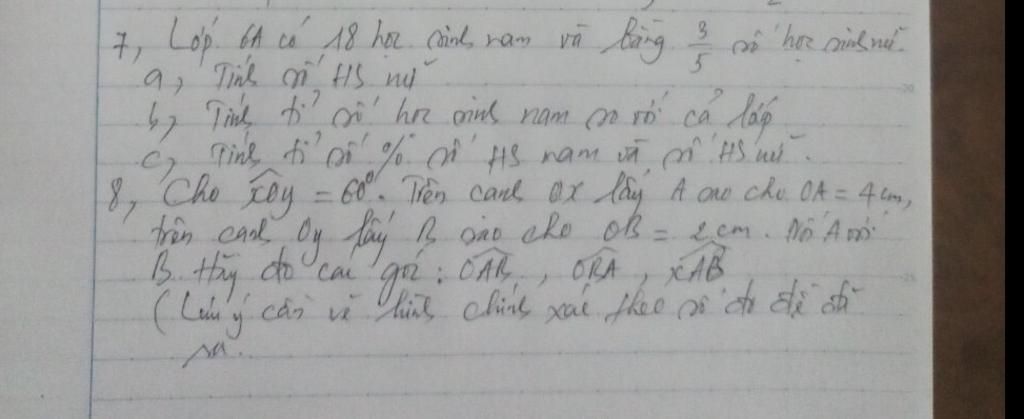 7, Lớp 6A có 18 học sinh nam và bằng 3/5 số học sinh nữ.
a, Tính số HS nữ
b, Tính tỉ số học sinh nam so với cả lớp
c, Tính tỉ số % số HS nam và số HS nữ.
8, Cho xOy = 60°. Trên cạnh Ox lấy A sao cho OA = 4 cm,
trên cạnh Oy lấy B sao cho OB = 2 cm. Nối A với
B. Hãy đo các góc: OAB, OBA, xAB
(Lưu ý cần vẽ hình chính xác theo số đo đề đã